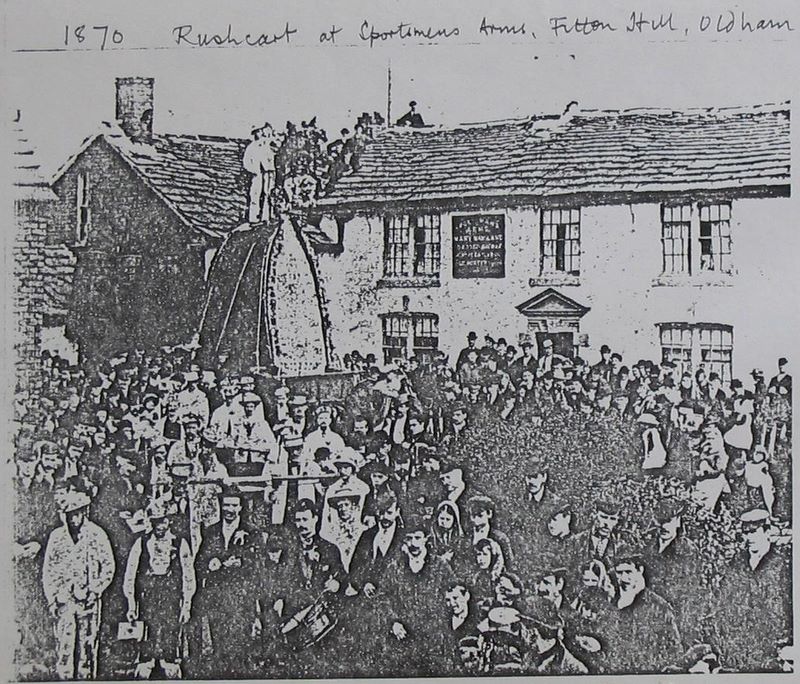 1870 Rushcart at Sportsmens Arms, Fitton Hill, Oldham
ARMS